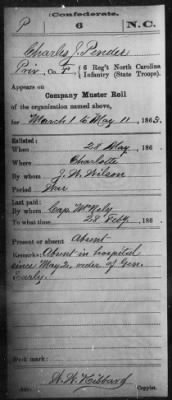 (Confederate.)
P 6 N.C.
Charles J. Pender
Priv., Co. F, 6 Reg't North Carolina
Infantry (State Troops).
Appears on
Company Muster Roll
of the organization named above,
for March 1 to May 11, 1863.
Enlisted:
When 28 May, 186
Where Charlotte
By whom J. W. Wilson
Period War
Last paid:
By whom Cap. McNely
To what time 28 Feby, 186
Present or absent Absent
Remarks: Absent in hospital
since May 2, order of Gen.
Early.
Book mark:
Copyist.